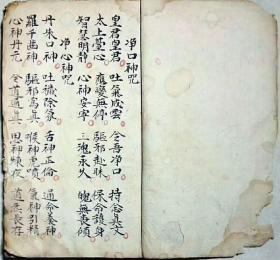 净口神咒
皇君皇君 吐氣成雲 今吾净口 持念真文
太上臺心 應變無停 驅邪赴昧 保命護身
智慧明静 心神安寧 三魂承久 魄無喪傾
净心神咒
丹朱口神 吐穢除氛 舌神正倫 通命養神
羅千齒神 驅邪真 喉神虎噴 氣神引精
心神丹元 令吾通真 思神煉液 道炁長存